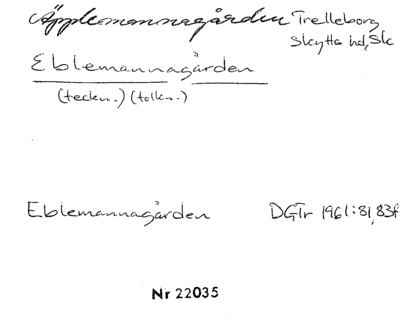 Äpplemannagården Trelleborg
Skytts hd, Sk
Eblemannagården
(teckn.) (tolkn.)
Eblemannagården DGTr 1961:81,83f
Nr 22035